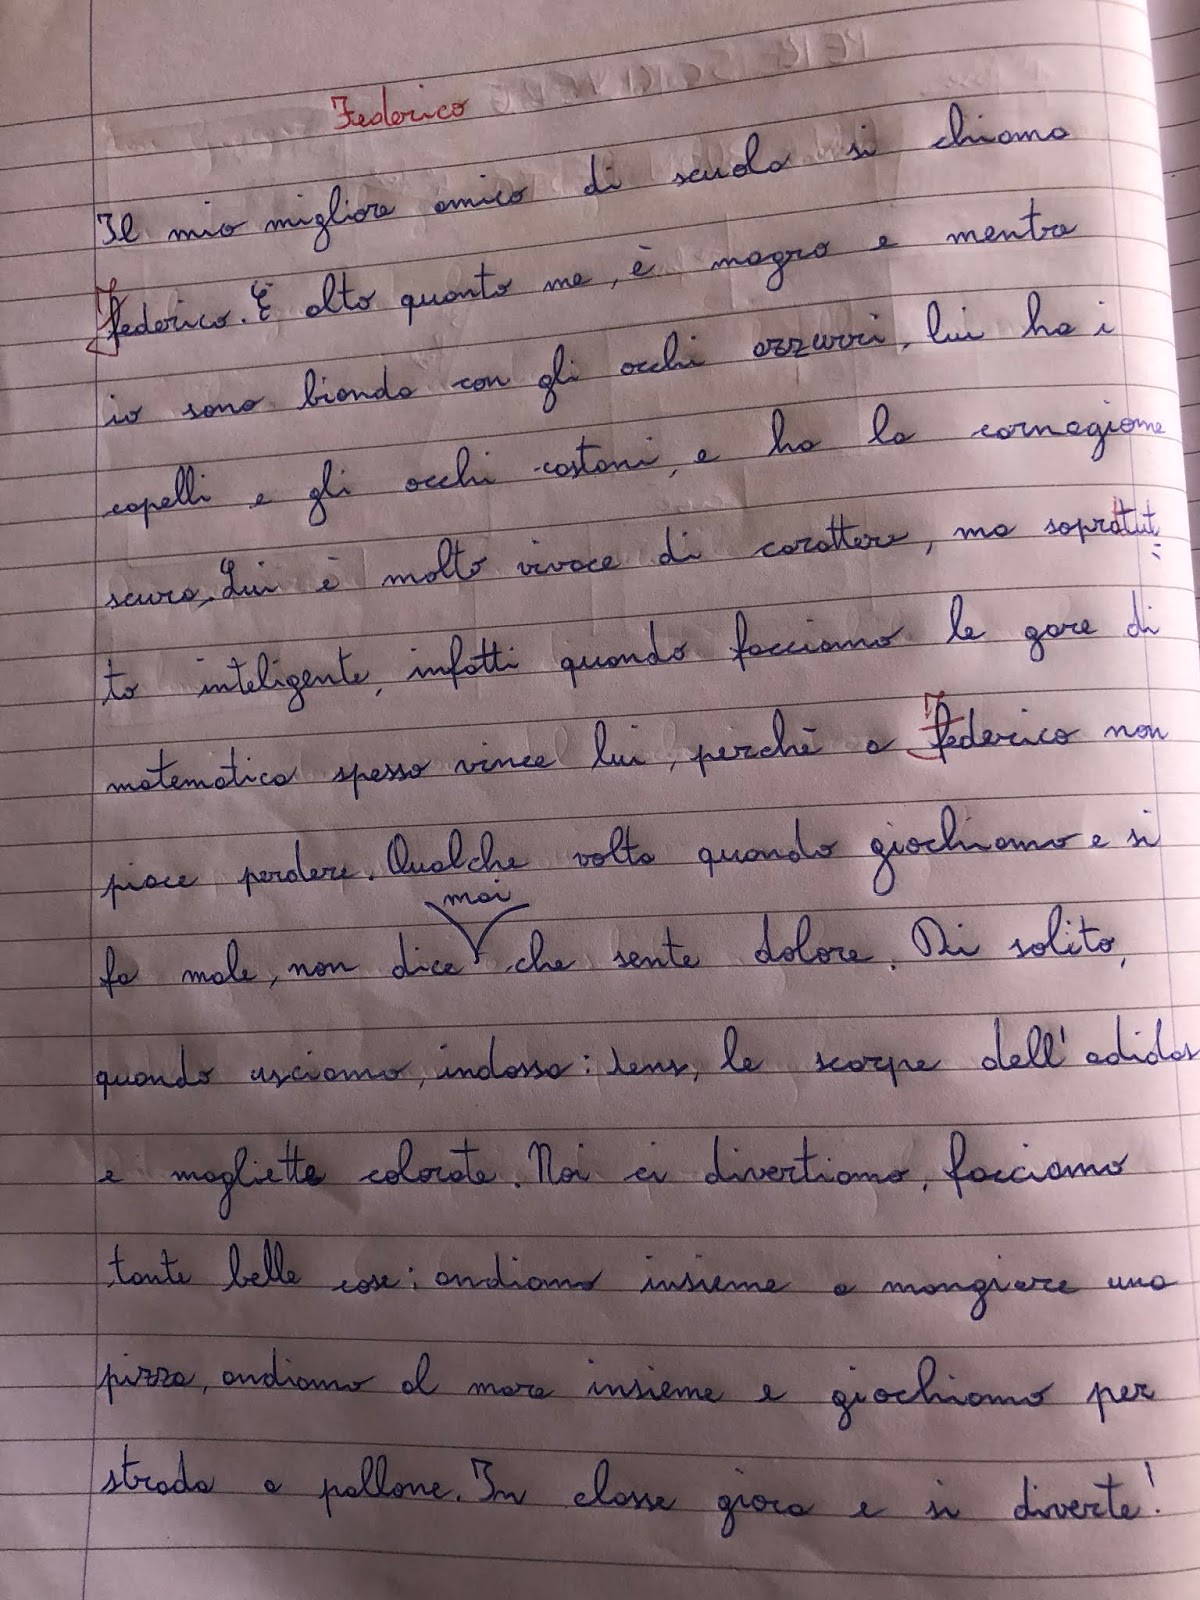 Federico
Il mio migliore amico di scuola si chiama
Federico. È alto quanto me, è magro e mentre
io sono biondo con gli occhi azzurri, lui ha i
capelli e gli occhi castani, e ha la carnagione
scura. Lui è molto vivace di carattere, ma sopratut=
to inteligente, infatti quando facciamo le gare di
matematica spesso vince lui, perchè a Federico non
piace perdere. Qualche volta quando giochiamo e si
mai
fa male, non dice che sente dolore. Di solito,
quando usciamo, indossa: jens, le scarpe dell'adidas
e magliette colorate. Noi ci divertiamo, facciamo
tante belle cose: andiamo insieme a mangiare una
pizza, andiamo al mare insieme e giochiamo per
strada a pallone. In classe gioca e si diverte!